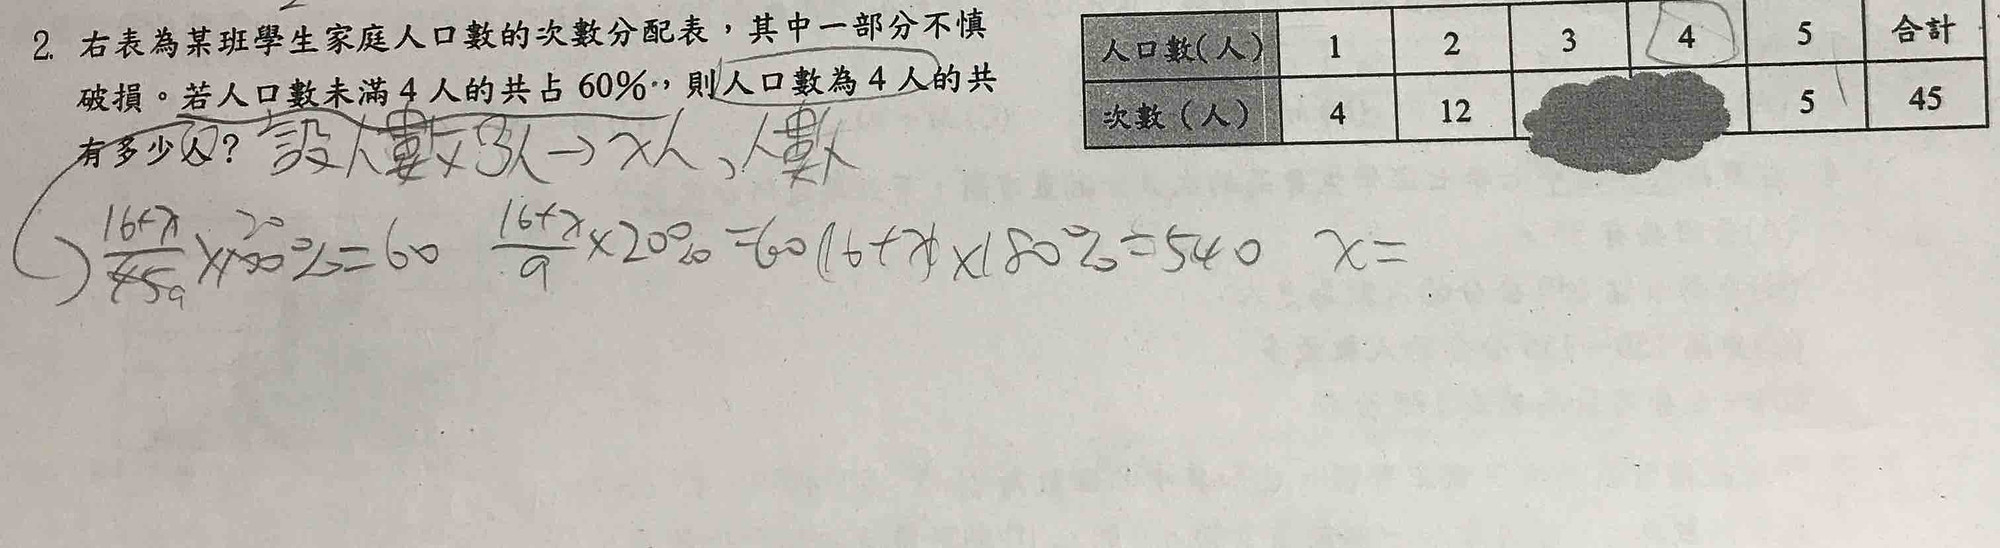 2. 右表為某班學生家庭人口數的次數分配表，其中一部分不慎
破損。若人口數未滿 4 人的共占 60%，則人口數為 4 人的共
有多少人？
設人數為3人→x人、人數
(16+x)/45 9 × 100 20 % = 60 (16+x)/9 × 20% = 60 (16+x)×180% = 540 x =
人口數(人) 1 2 3 4 5 合計
次數（人） 4 12 5 45